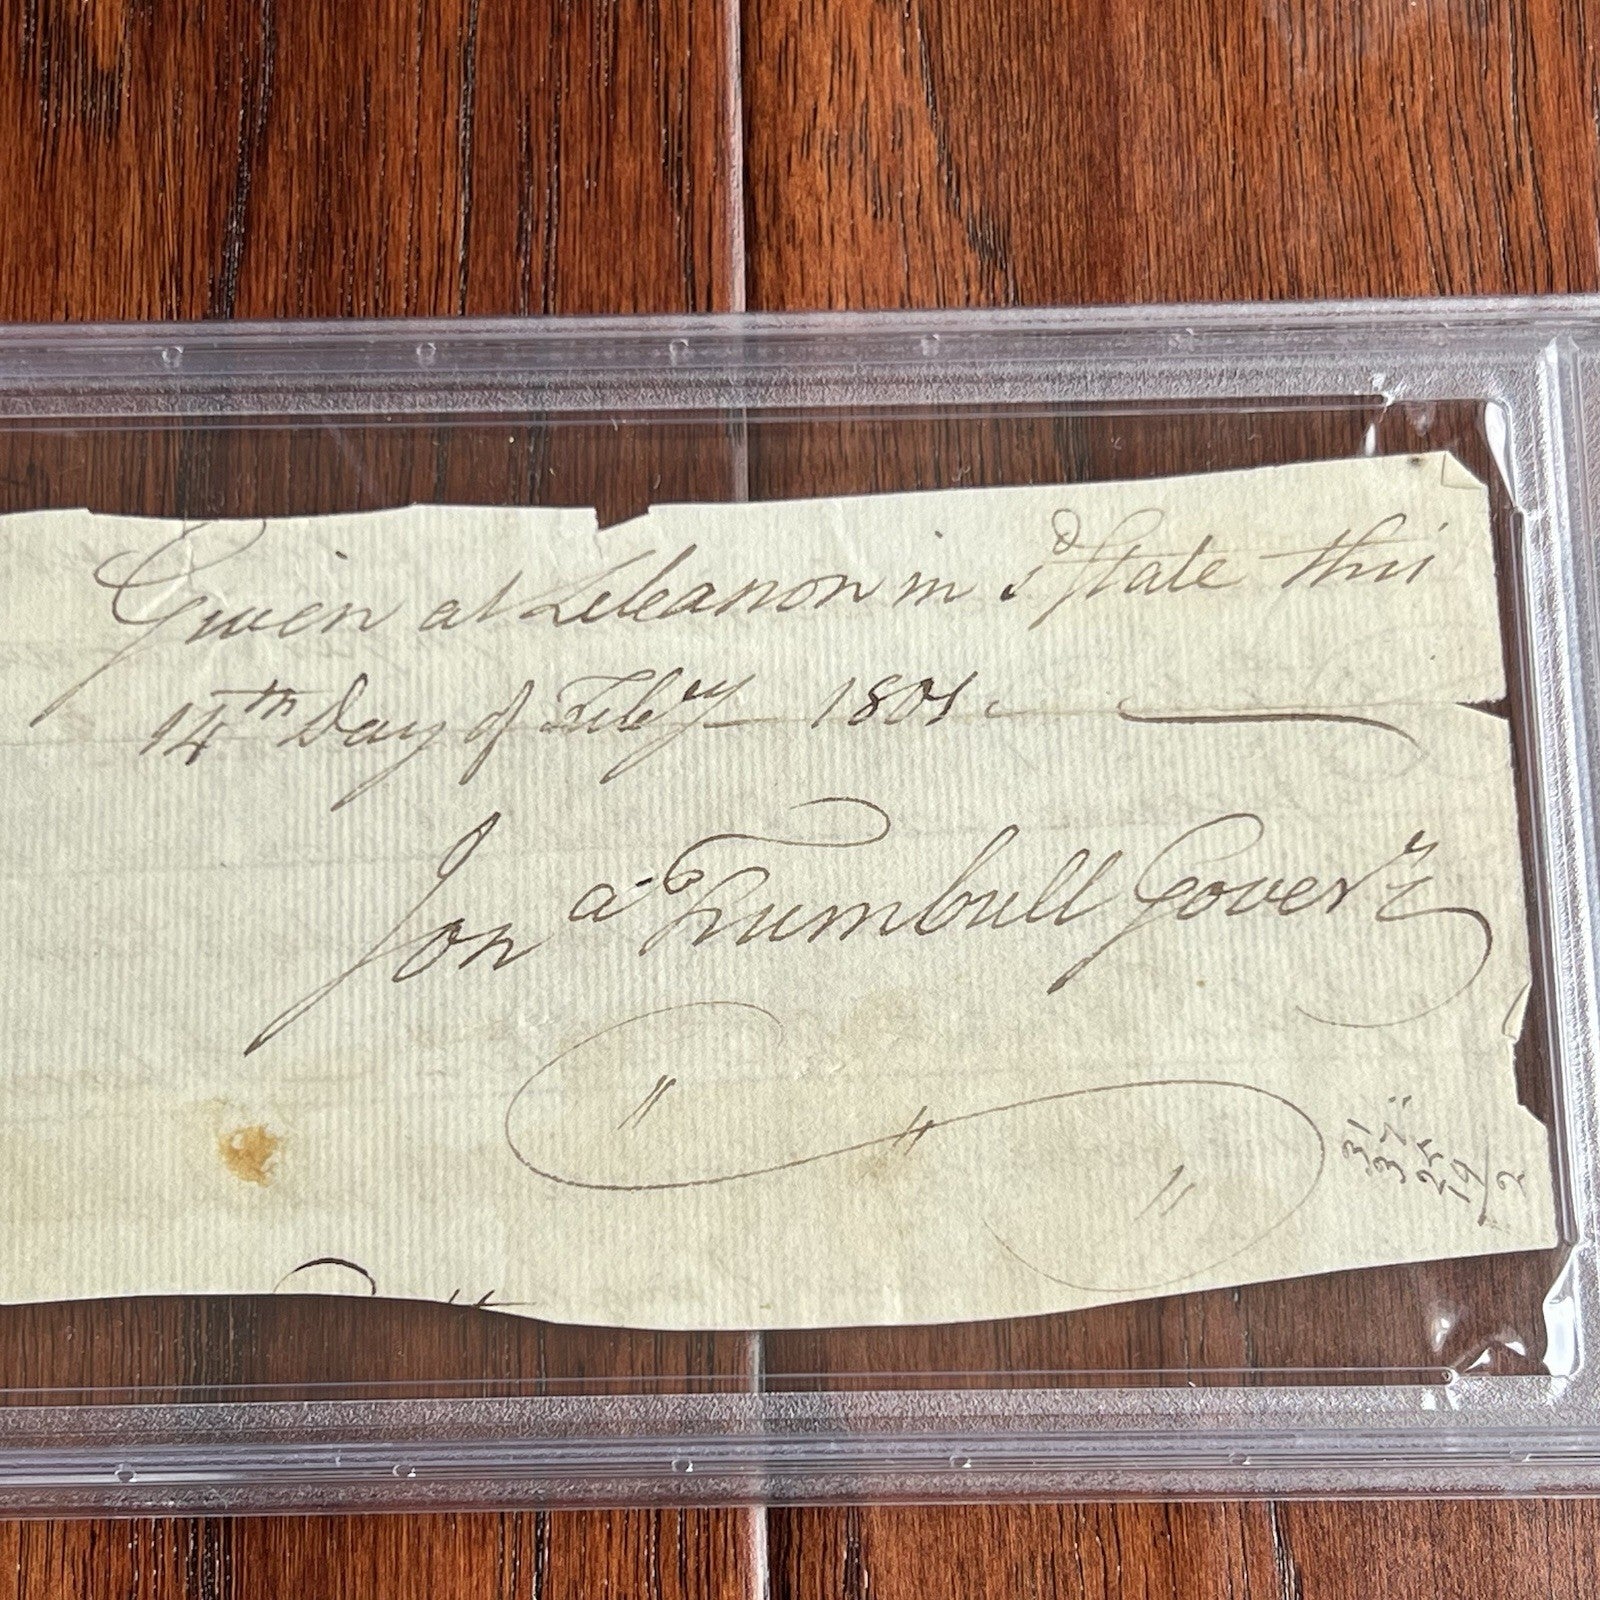 Given at Lebanon in sᵈ State this
14ᵗʰ Day of Febʸ 1801.
Jonᵃ Trumbull Goverʳ
31
37
25
19/2